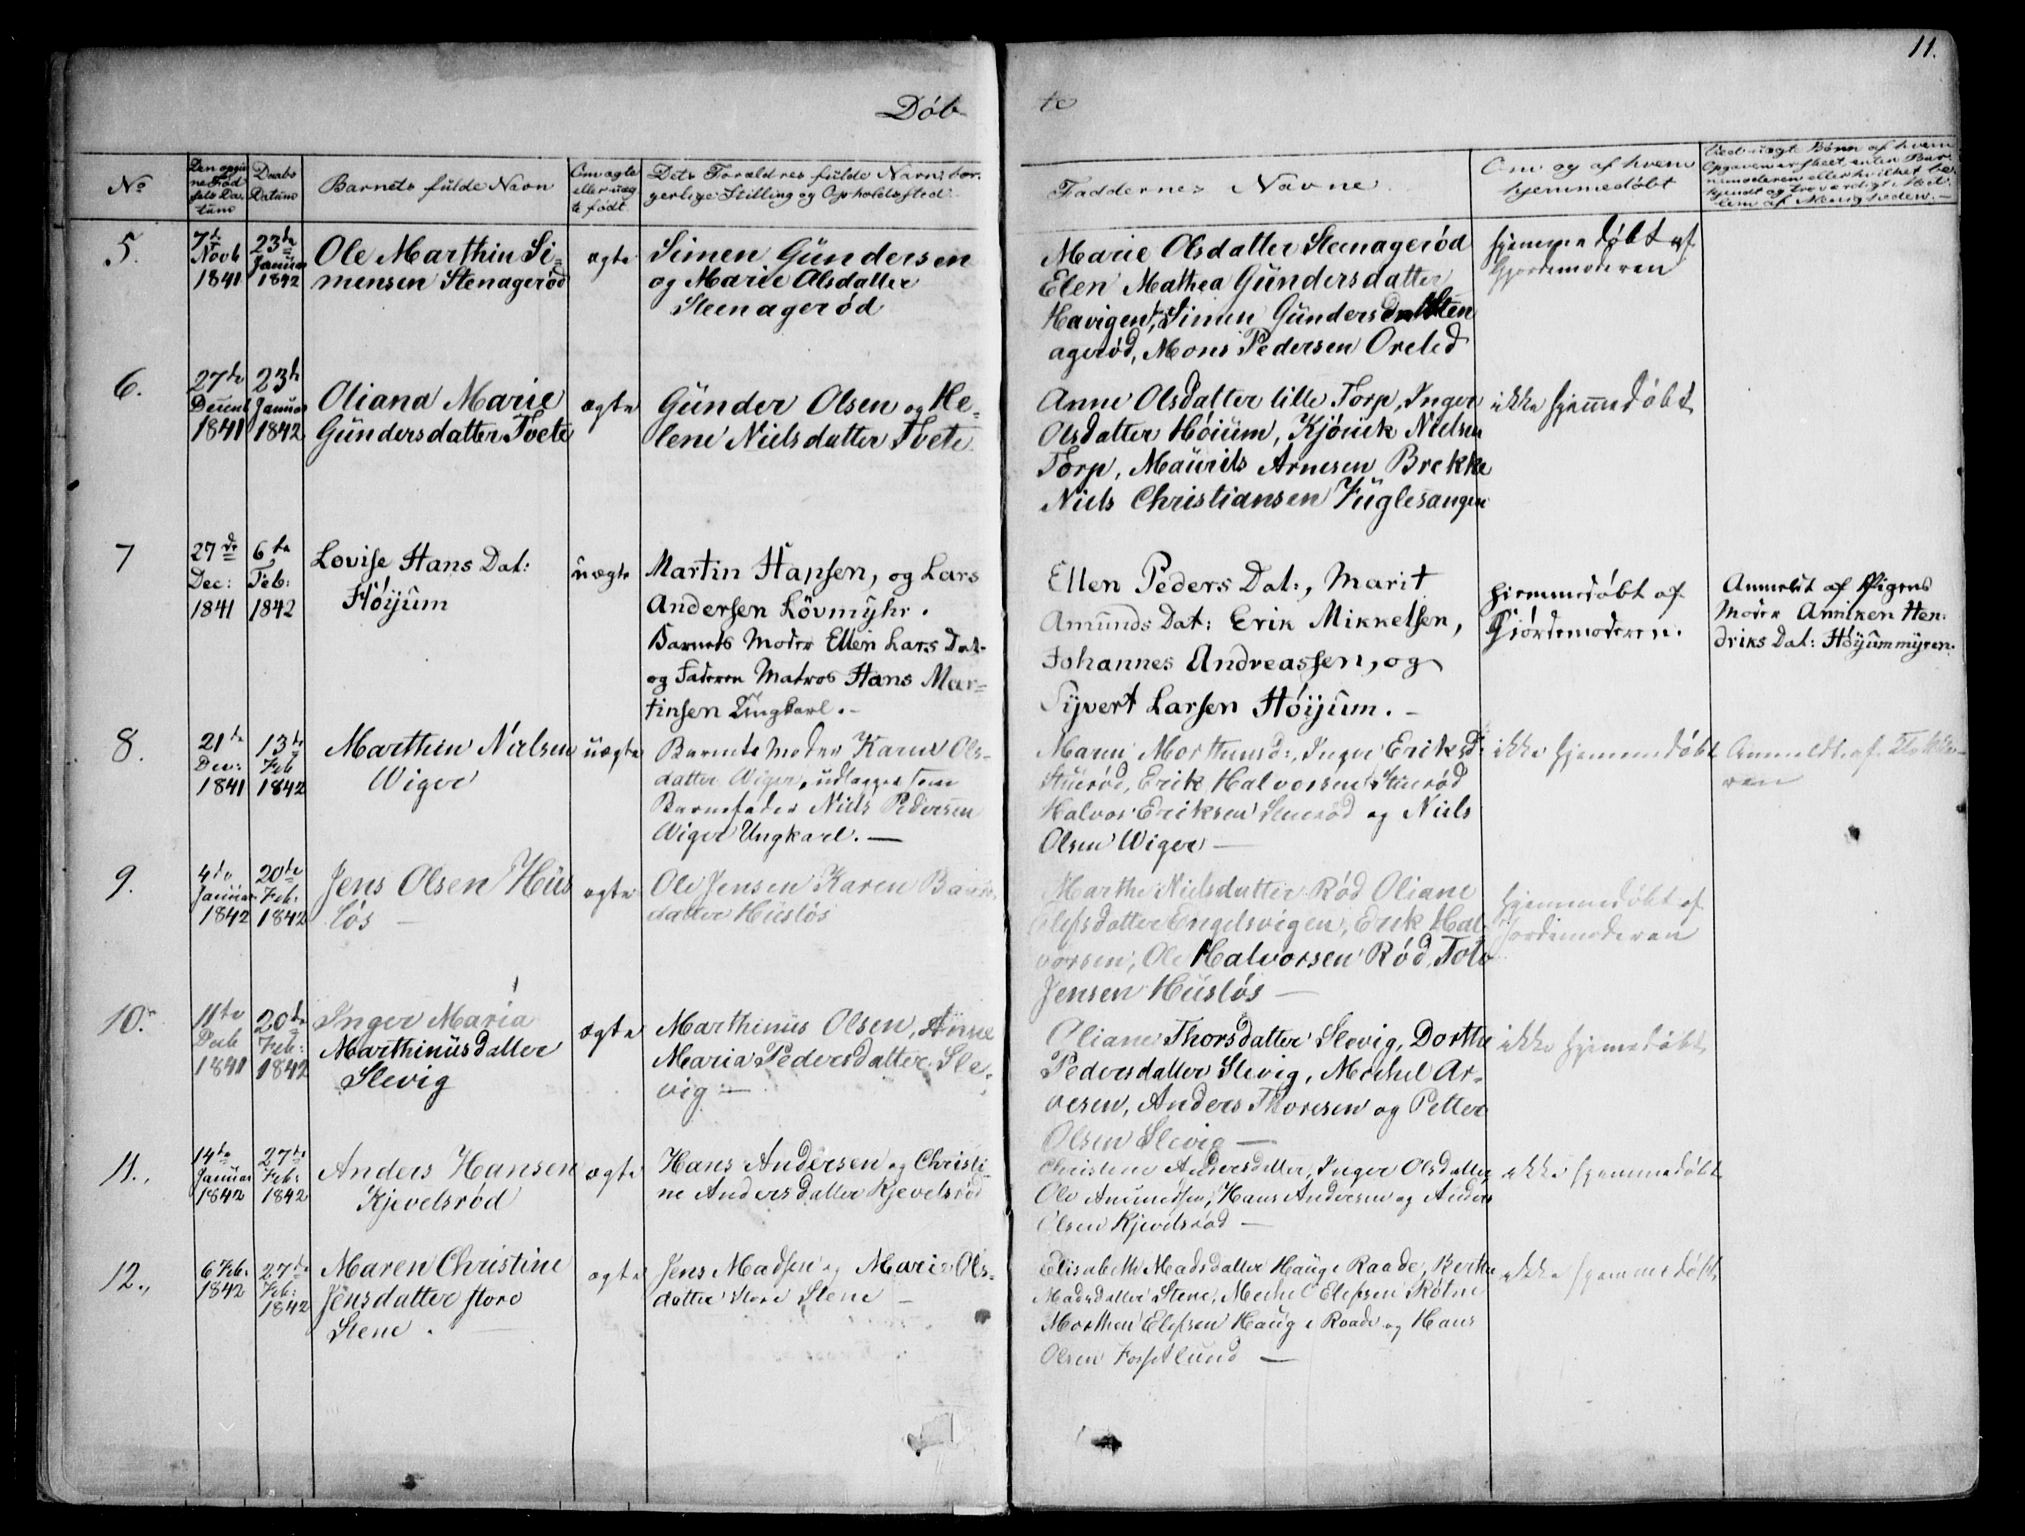 11.
Döbte
No
Den opgivne Fødsels Datum
Daabs Datum
Barnets fulde Navn
Om ægte eller uægte født
Dets Forældres fulde Navn, borgerlige Stilling og Opholdssted
Faddernes Navne
Om og af hvem hjemmedøbt
5.
7de
Novb
1841
23de
Januar
1842
Ole Marthin Si-
mensen Stenagerød
ægte
Simen Gundersen
og Marie Olsdatter
Steenagerød
Marie Olsdatter Steenagerød
Elen Mathea Gundersdatter
Havigen, Simen Gunders Sten
agerød, Mons Pedersen Oreled
hjemmedøbt af
Gjordemoderen
6.
27de
Decemb
1841
23de
Januar
1842
Oliana Marie
Gundersdatter Tvete
ægte
Gunder Olsen og He-
lene Nielsdatter Tvete
Anne Olsdatter lille Torp, Inger
Olsdatter Høium, Nielsen
Torp, Maurits Arnesen Brekke
Niels Christiansen Fuglesangen
ikke hjemmedøbt
7
27de
Dec:
1841
6te
Feb:
1842
Lovise Hans Dat:
Höijum
uægte
Martin Hansen, og Lars
Andersen Lövmyhr.
Barnets Moder Ellen Lars Dat-
og Faderen Matros Hans Mar=
tinsen Ungkarl. -
Ellen Peders Dat:, Marit
Amunds Dat: Erik Mikkelsen,
Johannes Andreassen, og
Sijvert Larsen Höijum. -
hjemmedöbt af
Gjördemoderen.
Anmeldt af Pigens
Moder Anniken Hen-
driks Dat: Höijummyren.
8.
21de
Dec:
1841
13de
Feb
1842
Marthin Nielsen
Wiger
uægte
Barnets Moder Karen Ols-
datter Wiger, udlagt som
Barnefader Niels Pedersen
Wiger Ungkarl. —
Maren Morthensd:, Inger Eriksd:
Stuerød, Erik Halvorsen Stuerød
Halvor Eriksen Stuerød og Niels
Olsen Wiger —
ikke hjemmedøbt
Anmeldt af
9.
4de
Januar
1842
20de
Feb:
1842
Jens Olsen Hus
løs —
ægte
Ole Jensen Karen
datter Husløs
Marthe Nielsdatter Rød Oliane
Elefsdatter Engelsvigen, Erik Hal
vorsen, Ole Halvorsen Rød,
Jensen Husløs —
hjemmedøbt af
Jordemoderen
10.
11te
Decb
1841
20de
Feb:
1842
Inger Maria
Marthinusdatter
Slevig
ægte
Marthinus Olsen, Anne
Maria Pedersdatter Sle-
vig —
Oliane Thorsdatter Slevig, Dorthe
Pedersdatter Slevig, Michel Ar-
vesen, Anders Thoresen og Petter
Olsen Slevig —
ikke hjemmedøbt
11.
14de
Januar
1842
27de
Feb:
1842
Anders Hansen
Kjevelsrød
ægte
Hans Andersen og Christi-
ne Andersdatter Kjevelsrød
Christine Andersdatter, Inger Olsdatter
Ole Amundsen, Hans Andersen og Anders
Olsen Kjevelsrød —
ikke hjemmedøbt
12.
6 Feb:
1842
27de
Feb:
1842
Maren Christine
Jensdatter store
Stene.
ægte
Jens Madsen og Marie Ols-
datter store Stene —
Elisabeth Madsdatter Haug i Raade, Berthe
Madsdatter Stene, Michel Elefsen
Morthen Elefsen Haug i Raade og Hans
Olsen Forsetlund —
ikke hjemmedøbt